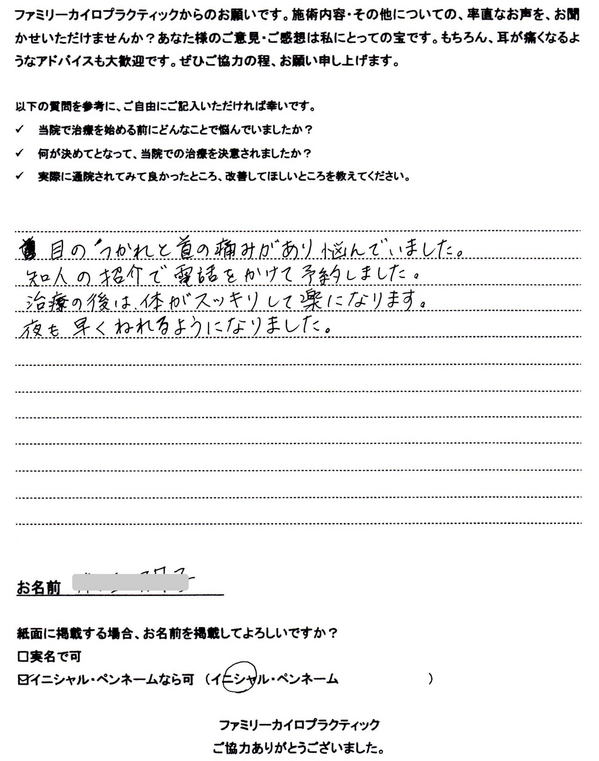 ファミリーカイロプラクティックからのお願いです。施術内容・その他についての、率直なお声を、お聞
かせいただけませんか？あなた様のご意見・ご感想は私にとっての宝です。もちろん、耳が痛くなるよ
うなアドバイスも大歓迎です。ぜひご協力の程、お願い申し上げます。
以下の質問を参考に、ご自由にご記入いただければ幸いです。
✓ 当院で治療を始める前にどんなことで悩んでいましたか？
✓ 何が決めてとなって、当院での治療を決意されましたか？
✓ 実際に通院されてみて良かったところ、改善してほしいところを教えてください。
目のつかれと首の痛みがあり悩んでいました。
知人の紹介で電話をかけて予約しました。
治療の後は、体がスッキリして楽になります。
夜も早くねれるようになりました。
お名前
紙面に掲載する場合、お名前を掲載してよろしいですか？
□実名で可
☑イニシャル・ペンネームなら可 （イニシャル・ペンネーム ）
ファミリーカイロプラクティック
ご協力ありがとうございました。